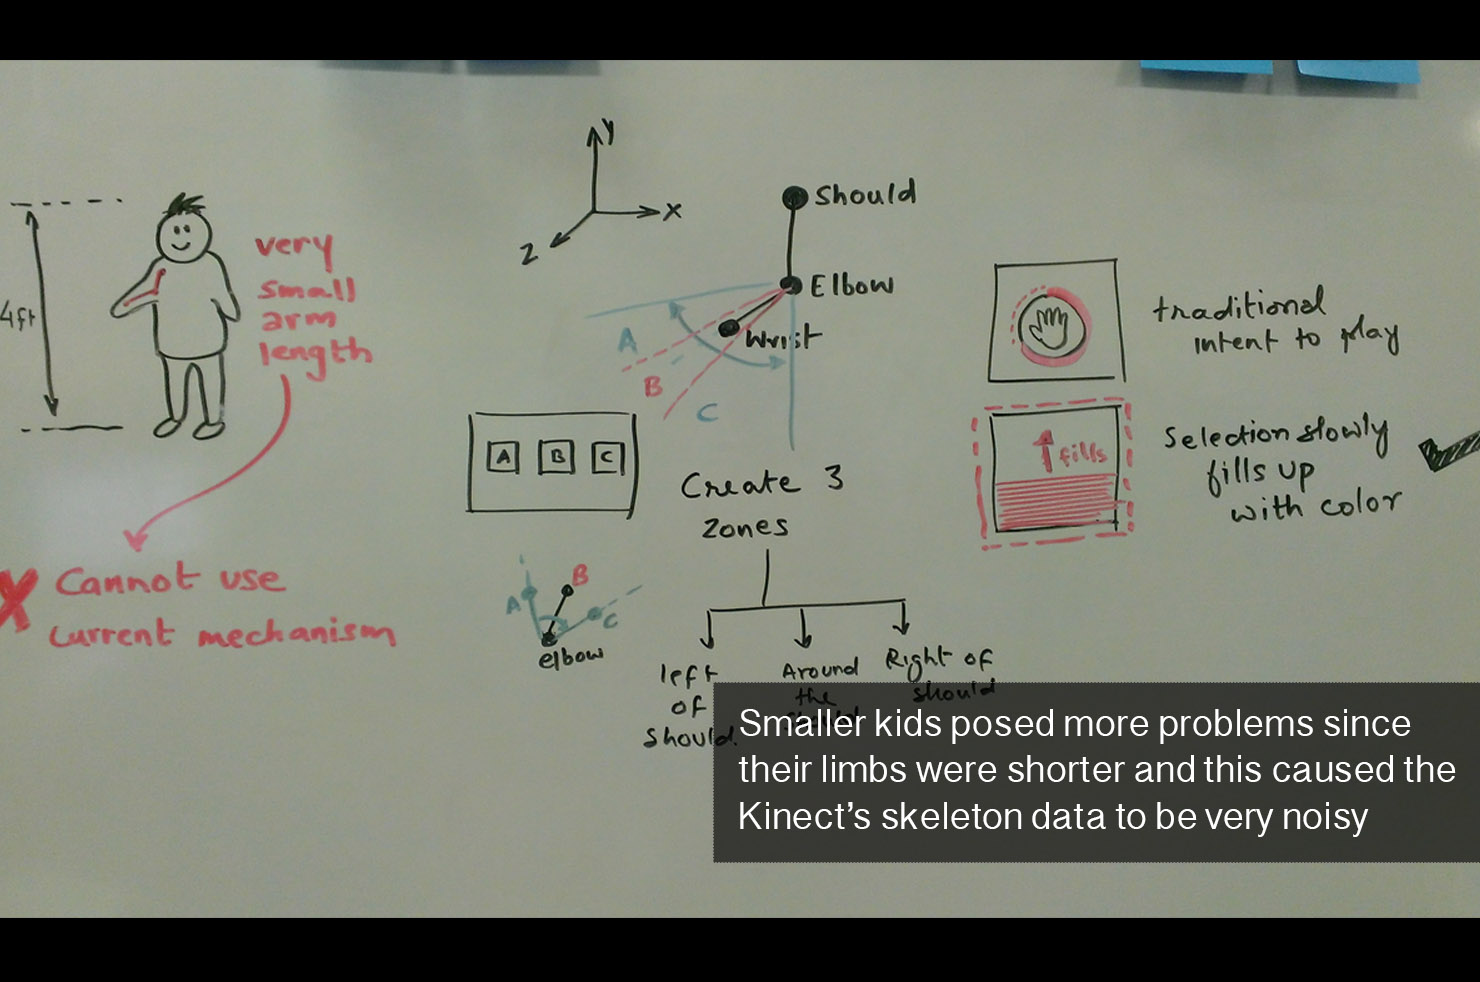 4ft
very
small
arm
length
Cannot use
Current mechanism
Y
X
Z
Should
Elbow
Wrist
A
B
C
A B C
Create 3
zones
A
B
C
elbow
left
of
should.
Around
the
should
Right of
should
traditional
intent to play
fills
Selection slowly
fills up
with color
Smaller kids posed more problems since
their limbs were shorter and this caused the
Kinect’s skeleton data to be very noisy